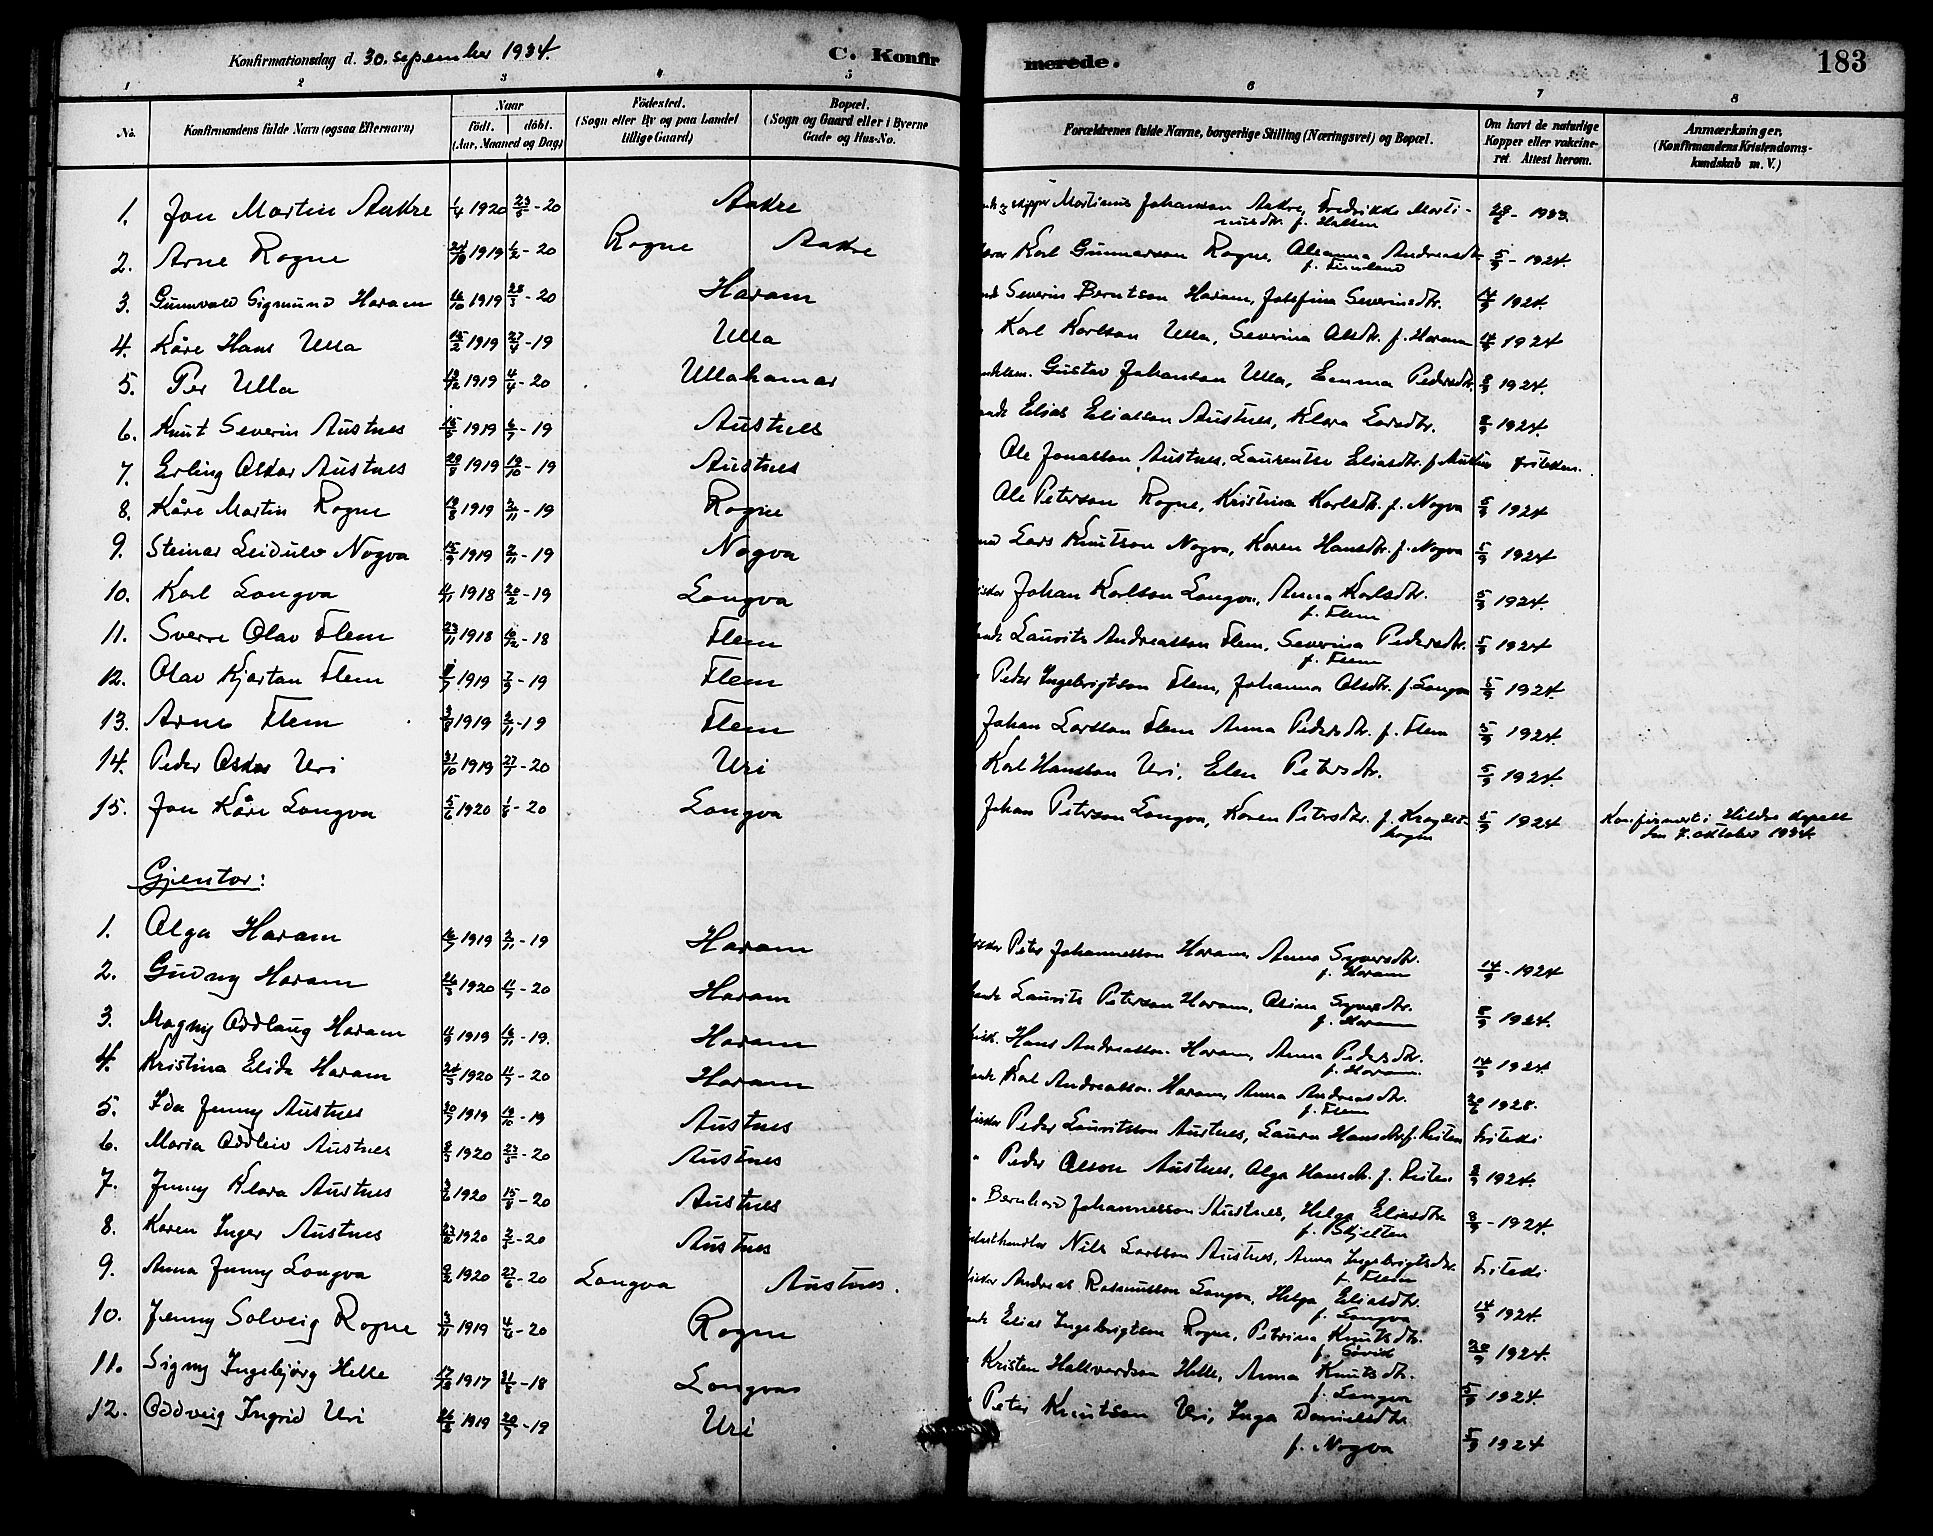 Konfirmationsdag d. 30. september 1934. C. Konfirmerede. 183
1 2 3 4 5 6 7 8
No. Konfirmandens fulde Navn (ogsaa Efternavn) Naar födt. döbt. (Aar, Maaned og Dag) Födested. (Sogn eller By og paa Landet tillige Gaard) Bopæl. (Sogn og Gaard eller i Byerne Gade og Hus-No. Forældrenes fulde Navne, borgerlige Stilling (Næringsvei) og Bopæl. Om havt de naturlige Kopper eller vakcineret. Attest herom. Anmærkninger. (Konfirmandens Kristendomskundskab m. V.)
1. Jon Martin Aakre 1/4 1920 23/5 - 20 Aakre skipper Martinus Johanson Aakre, Fredrikke Martinusdtr. - 1933.
2. Arne Rogne 1919 - 20 Rogne Aakre Karl Gunnarson Rogne, Andreasdtr. 5/9 - 1924.
3. Gunnvald Sigmund Haram 1919 - 20 Haram Severin Berntson Haram, Josefina Severinsdtr. 14/9 1924.
4. Kåre Hans Ulla 15/2 1919 27/4 - 19 Ulla Karl Karlson Ulla, Severina Olsdtr. f. Haram 14/9 1924
5. Per Ulla 1919 4/4 - 20 Ullahamar Gustav Johanson Ulla, Emma Pedersdtr. 8/9 1924.
6. Knut Severin Austnes 1919 6/7 - 19 Austnes Elias Eliasson Austnes, Klara Larsdtr. 8/9 1924.
7. Erling Oskar Austnes 1919 19/10 - 19 Austnes Ole Jonasson Austnes, Laurentse Eliasdtr. f.
8. Kåre Martin Rogne 1919 2/11 - 19 Rogne Ole Peterson Rogne, Kristina Karlsdtr. f. Nogva 5/9 1924
9. Steinar Leidulv Nogva 15/9 1919 2/11 - 19 Nogva Lars Knutson Nogva, Karen Hansdtr. f. Nogva 5/9 1924
10. Karl Longva 1918 - 19 Longva Johan Karlson Longva, Anna Karlsdtr. f. Flem 5/9 1924.
11. Sverre Olav Flem 23/11 1918 - 18 Flem Laurits Andreasson Flem, Severina Pedersdtr. f. Flem 5/9 1924
12. Olav Kjartan Flem 1919 7/9 - 19 Flem Peder Ingebrigtson Flem, Johanna Olsdtr. f. Longva 5/9 1924
13. Arne Flem 1919 2/11 - 19 Flem Johan Larsson Flem Anna Pedersdtr. f. Flem 5/9 1924.
14. Peder Oskar Uri 31/10 1919 - 20 Uri Karl Hansson Uri, Elen Petersdtr. 5/9 1924.
15. Jon Kåre Longva 5/6 1920 1/8 - 20 Longva Johan Peterson Longva, Karen Petersdtr. f. 5/9 1924 Konfirmert i Hildre kapell den 7. oktober 1934.
Gjentor:
1. Olga Haram 1919 2/11 - 19 Haram Peter Johannesson Haram, Anna Syversdtr. f. Haram 14/9 - 1924
2. Gudny Haram 1920 - 20 Haram Laurits Peterson Haram, Olina Syversdtr. f. Haram 8/9 1924.
3. Magny Oddlaug Haram 1919 16/11 - 19. Haram Hans Andreasson Haram, Anna Pedersdtr. f. Haram. 14/9 1924.
4. Kristina Elida Haram 1920 - 20 Haram Karl Andreasson Haram, Anna Andreasdtr. f. Flem 1928.
5. Ida Jenny Austnes 1919 19/10 - 19 Austnes Peder Lauritsson Austnes, Laura Hansdtr. f.
6. Maria Oddleiv Austnes 1920 23/5 - 20 Austnes Peder Olson Austnes, Olga Hansdtr. f. 8/9 1924.
7. Jenny Klara Austnes 1920 15/8 - 20 Austnes Bernhard Johannesson Austnes, Helga Eliasdtr. f. Skjelten 8/9 - 1924.
8. Karen Inger Austnes 1920 - 20 Austnes Nils Larsson Austnes, Anna Ingebrigtsdtr. f. Flem
9. Anna Jenny Longva 1920 27/6 - 20 Longva Austnes. Andreas Rasmusson Longva, Helga Eliasdtr. f. Longva 14/9 1924
10. Jenny Solveig Rogne 1919 4/4 - 20 Rogne Elias Ingebrigtson Rogne, Petrina Knutsdtr. f. Søvik 1924.
11. Signy Ingebjørg Helle 1917 - 18 Longva Kristen Hallvardson Helle, Anna Knutsdtr. f. Longva 5/9 1924
12. Oddveig Ingrid Uri 1919 - 19 Uri Peter Knutson Uri, Inga Danielsdtr. f. Nogva 5/9 1924